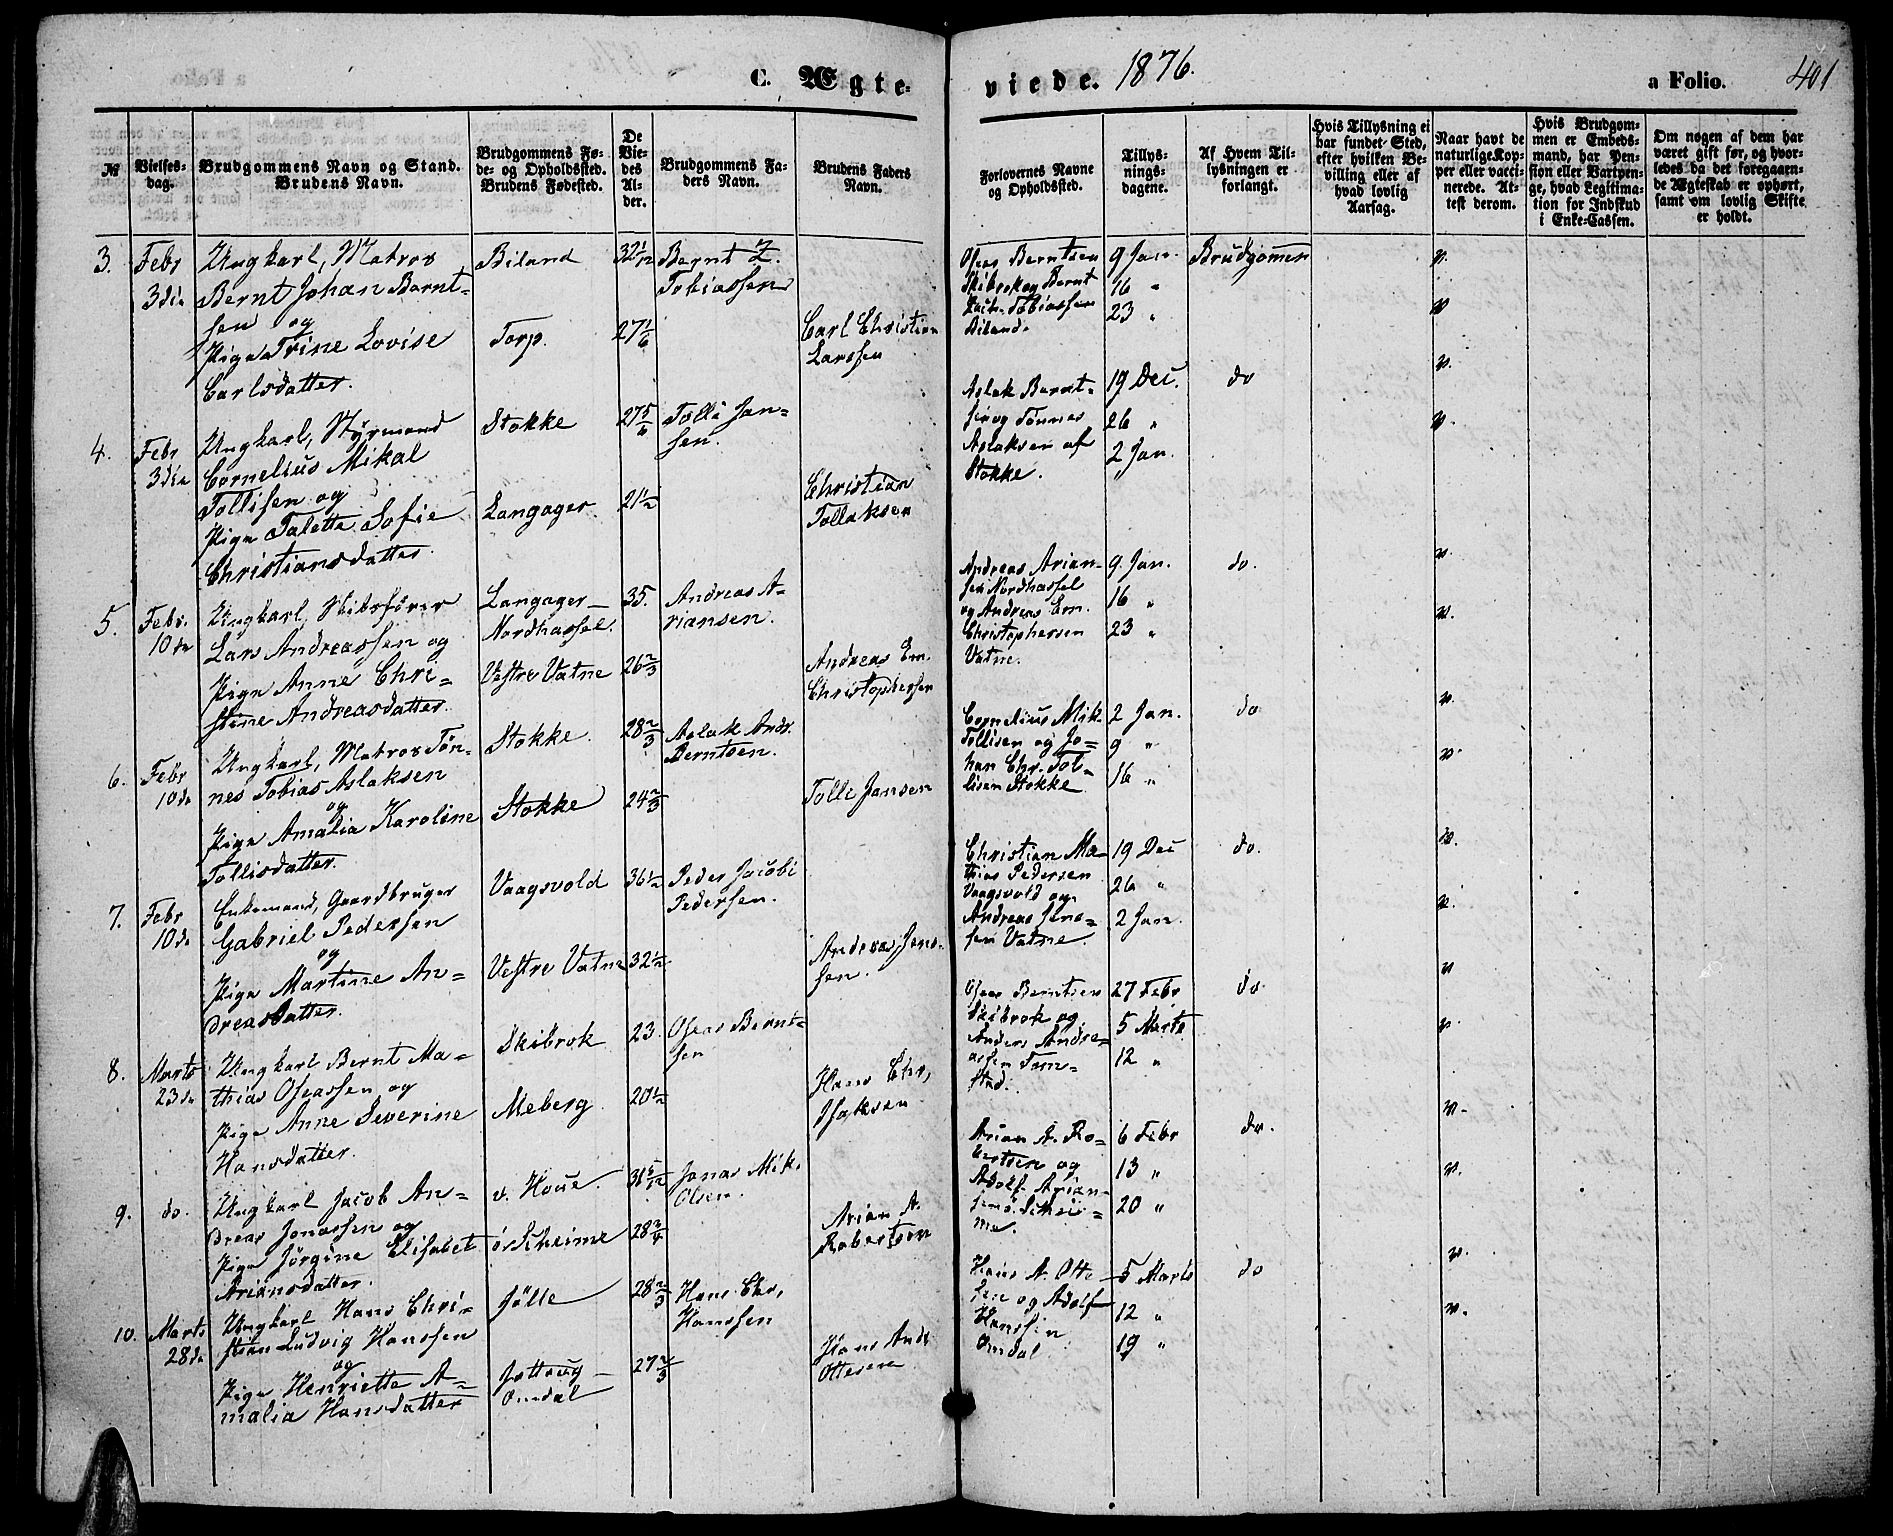 C. Ægte-
viede. 1876.
a Folio. 401
№
Vielses-
dag.
Brudgommens Navn og Stand.
Brudens Navn.
Brudgommens Fø-
de- og Opholdssted.
Brudens Fødested.
De
Vie-
des
Al-
der.
Brudgommens Fa-
ders Navn.
Brudens Faders
Navn.
Forlovernes Navne
og Opholdssted.
Tillys-
nings-
dagene.
Af Hvem Til-
lysningen er
forlangt.
Hvis Tillysning ei
har fundet Sted,
efter hvilken Be-
villing eller af
hvad lovlig
Aarsag.
Naar havt de
naturlige Kop-
per eller vacci-
nerede. At-
test derom.
Hvis Brudgom-
men er Embeds-
mand, har Pen-
sion eller Vartpen-
ge, hvad Legitima-
tion for Indskud
i Enke-Cassen.
Om nogen af dem har
været gift før, og hvor-
ledes da det foregaaen-
de Ægteskab er ophørt,
samt om lovlig Skifte
er holdt.
3.
Febr
3die
Ungkarl, Matros
Bernt Johan Bernt-
sen og
Pige Trine Lovise
Carlsdatter.
Biland
Torp.
32 1/12
27 1/6
Bernt Z.
Tobiassen
Carl Christian
Larssen
Oseas Berntsen
Skibrok og Bernt
Zach. Tobiassen
Biland.
9 Jan.
16 "
23 "
Brudgommen
v.
v.
4.
Febr
3die
Ungkarl, Styrmand
Cornelius Mikal
Tollisen og
Pige Talette Sofie
Christiansdatter.
Stokke
Langager
27 5/6
21 1/2
Tolli Jan-
sen.
Christian
Tollaksen
Aslak Bernt-
sen og Tønnes
Aslaksen af
Stokke.
19 Dec.
26 "
2 Jan.
do
v.
v.
5.
Febr.
10de
Ungkarl, Skibsfører
Lars Andreassen og
Pige Anne Chri-
stine Andreasdatter.
Langager-
Nordhassel.
Vestre Vatne
35.
26 2/3
Andreas A-
riansen.
Andreas Em.
Christophersen
Andreas Arian-
sen Nordhassel
og Andreas Em.
Christophersen
Vatne.
9. Jan.
16 "
23 "
do.
v.
v.
6.
Febr
10de
Ungkarl, Matros Tøn-
nes Tobias Aslaksen
og
Pige Amalia Karoline
Tollisdatter.
Stokke.
Stokke
28 2/3
24 2/3
Aslak Andr.
Berntsen.
Tolli Jansen
Cornelius Mik.
Tollisen og Jo-
han Chr. Tol-
lisen Stokke.
2 Jan.
9 "
16 "
do
v.
v.
7.
Febr
10de
Enkemand, Gaardbruger
Gabriel Pedersen
og
Pige Martine An-
dreasdatter.
Vaagsvold
Vestre Vatne
36 1/2
32 1/2
Peder Jacobi
Pedersen.
Andreas Jens-
sen.
Christian Ma-
thias Pedersen
Vaagsvold og
Andreas Jens-
sen Vatne.
19 Dec
26 "
2 Jan.
do.
v.
v.
8.
Marts
23de
Ungkarl Bernt Ma-
thias Oseassen og
Pige Anne Severine
Hansdatter.
Skibrok
Meberg.
23.
20 1/2
Oseas Bernt-
sen
Hans Chr.
Isaksen
Oseas Berntsen
Skibrok og
Anders Andre-
assen Tom-
stad.
27 Febr
5 Marts
12 "
do
v
v.
9.
do.
Ungkarl Jacob An-
dreas Jonassen og
Pige Jørgine Elisabet
Ariansdatter.
v. Houe.
ør Skeime
31 5/12
28 3/4
Jonas Mik.
Olsen.
Arian A.
Robertsen
Arian A. Ro-
bertsen og
Adolf Arian-
sen ø. Skei-
me.
6 Febr
13 "
20 "
do.
v.
v.
10.
Marts
28de
Ungkarl Hans Chri-
stian Ludvig Hanssen
og
Pige Henriette A-
malia Hansdatter
Jølle
Omdal
28 2/3
27 2/3
Hans Chr.
Hanssen
Hans Andr
Ottesen
Hans A. Otte-
sen og Adolf
Hanssen
Omdal
5 Marts
12 "
19 "
do
v.
v.